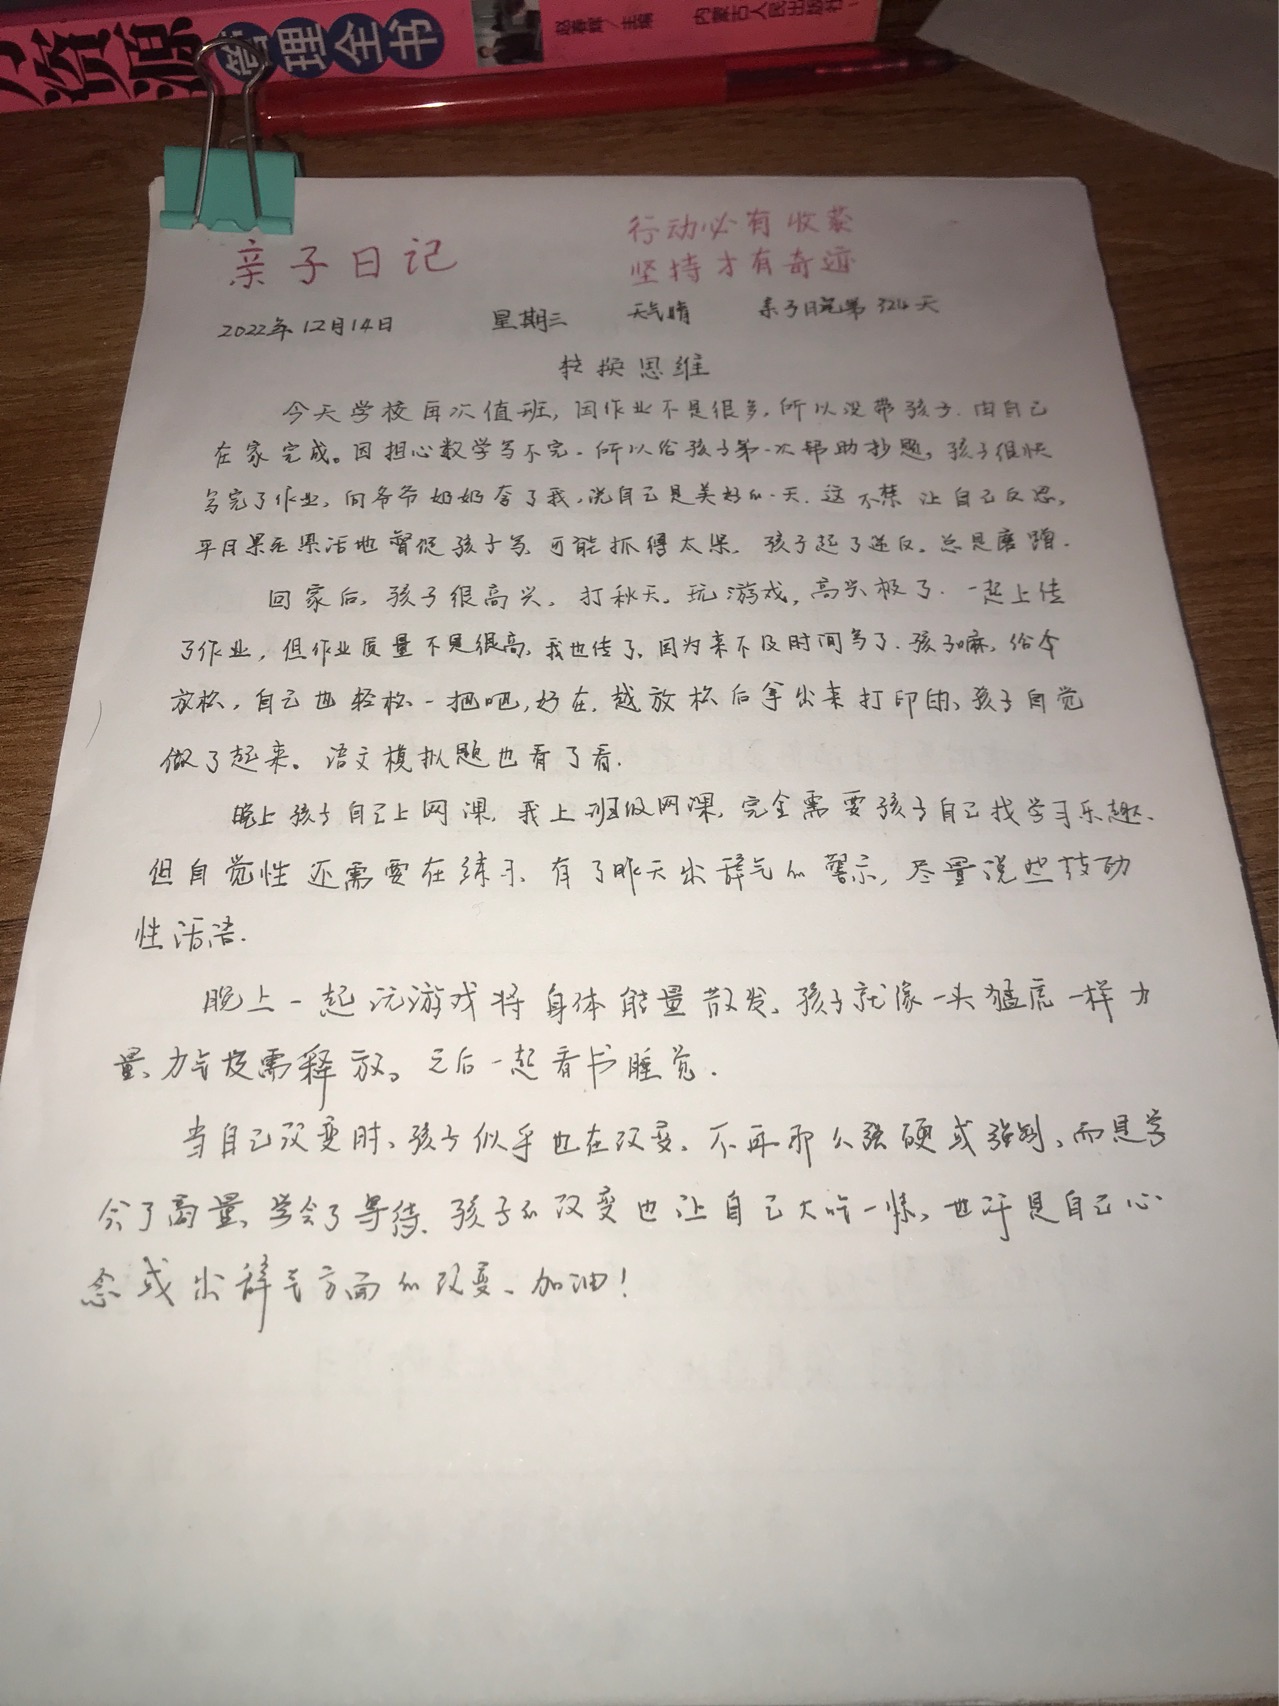 资源管理全书
赵春辉/主编
内蒙古人民出版社
亲子日记
行动必有收获
坚持才有奇迹
2022年12月14日 星期三 天气晴 亲子日记第324天
转换思维
今天学校再次值班,因作业不是很多,所以没带孩子.由自己
在家完成。因担心数学写不完.所以给孩子第一次帮助抄题,孩子很快
写完了作业,向爷爷奶奶夸了我,说自己是美好的一天.这不禁让自己反思,
平日督促孩子写,可能抓得太紧.孩子起了逆反.总是磨蹭.
回家后,孩子很高兴,打秋天,玩游戏,高兴极了.一起上传
了作业,但作业质量不是很高,我也传了,因为来不及时间写了.孩子嘛,给个
放松,自己也轻松一把吧,好在,越放松后拿出来打印的,孩子自觉
做了起来。语文模拟题也看了看.
晚上孩子自己上网课,我上班级网课,完全需要孩子自己找学习乐趣.
但自觉性还需要在练习,有了昨天出辞气的警示,尽量说些鼓励
性话语.
晚上一起玩游戏将身体能量散发,孩子就像一头猛虎一样力
量、力气没需释放。之后一起看书睡觉.
当自己改变时,孩子似乎也在改变,不再那么强硬或强制,而是学
会了商量,学会了等待,孩子的改变也让自己大吃一惊,也许是自己心
念或出辞气方面的改变、加油!